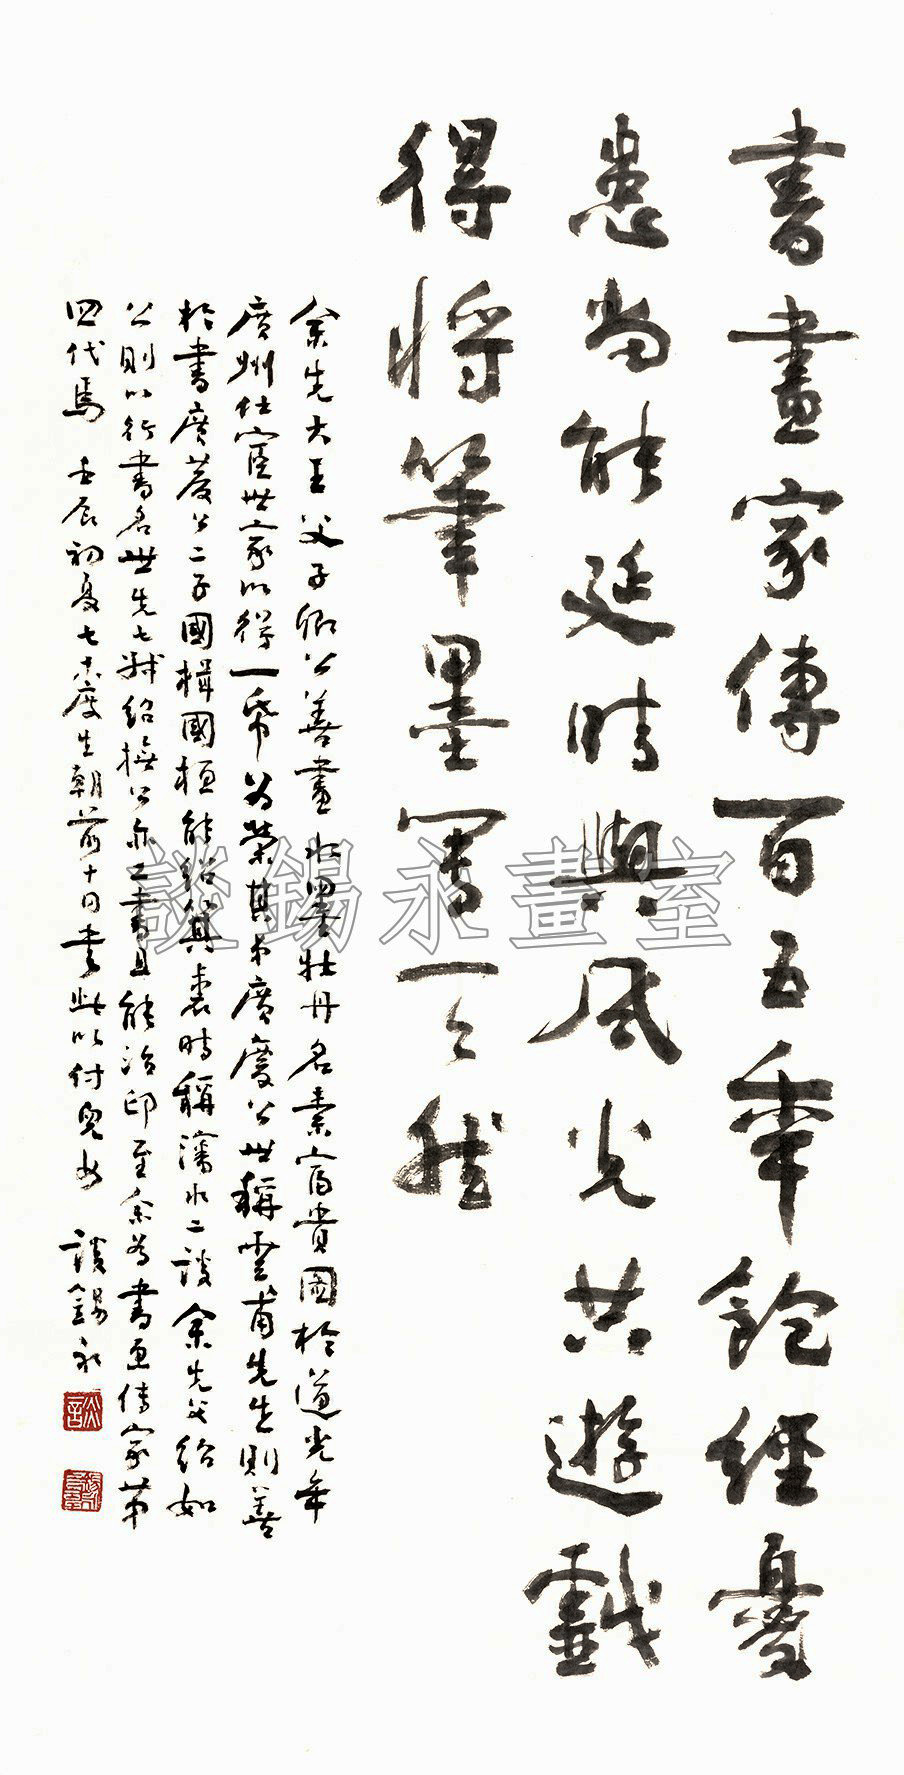 書畫家傳百五年飽經憂
患尚能延時與風光共遊戲
得將筆墨寫天然
余先大王父子卿公善畫水墨牡丹名素富貴圖於道光年
廣州仕宦世家以得一幀為榮其弟廣慶公世稱雲甫先生則善
於書廣慶公二子國楫國桓能紹箕裘時稱藩水二談余先父紹如
公則以行書名世先七叔紹撫公亦工書且能治印至余為書画傳家第
四代焉 壬辰初夏七十六度生朝前十日書此以付兒女 談錫永
談錫永畫室